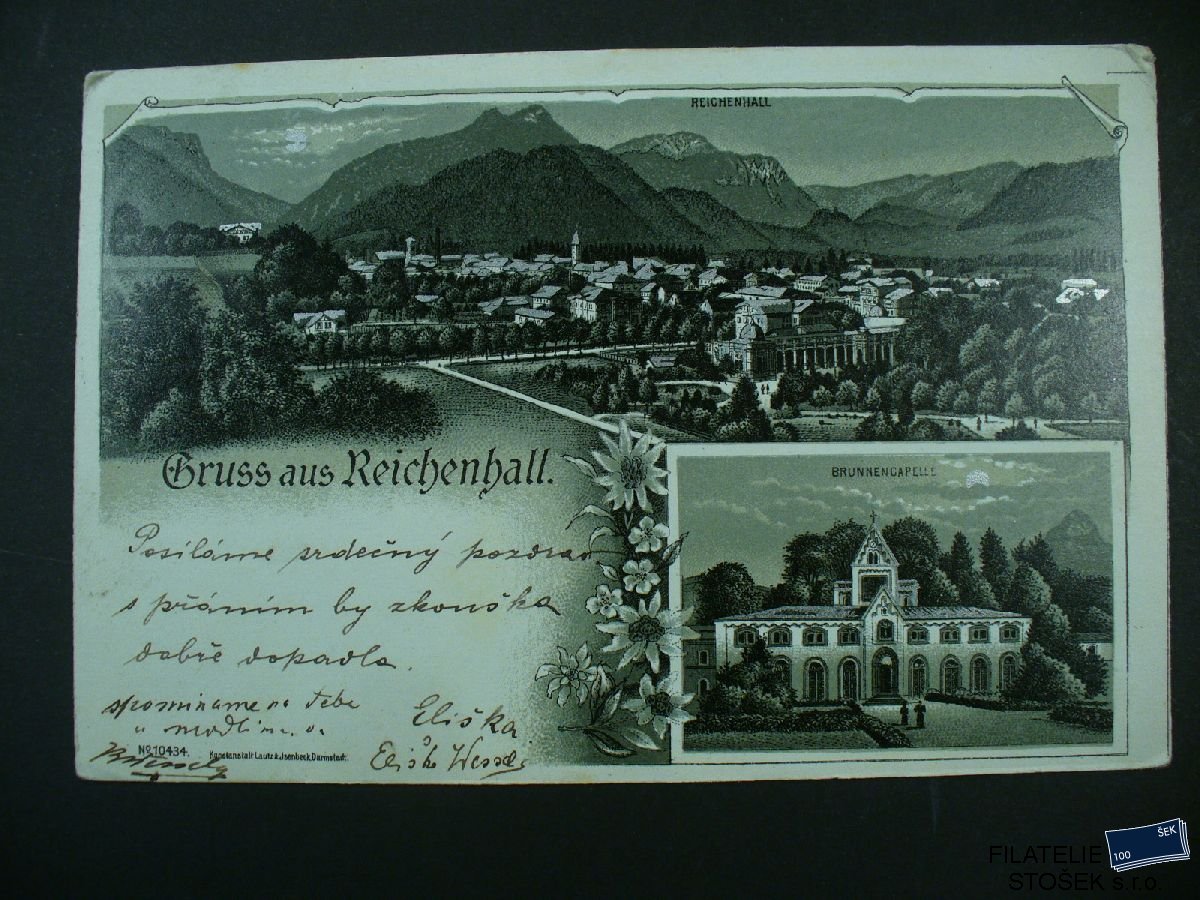 REICHENHALL
Gruss aus Reichenhall.
BRUNNENCAPELLE
Posíláme srdečný pozdrav
s přáním by zkouška
dobře dopadla.
spomínáme na tebe
a modlíme
Eliška
Eliška Wessely
No 10434.
Kunstanstalt Lautz & Jsenbeck, Darmstadt.
FILATELIE
STOŠEK s.r.o.
100 ŠEK